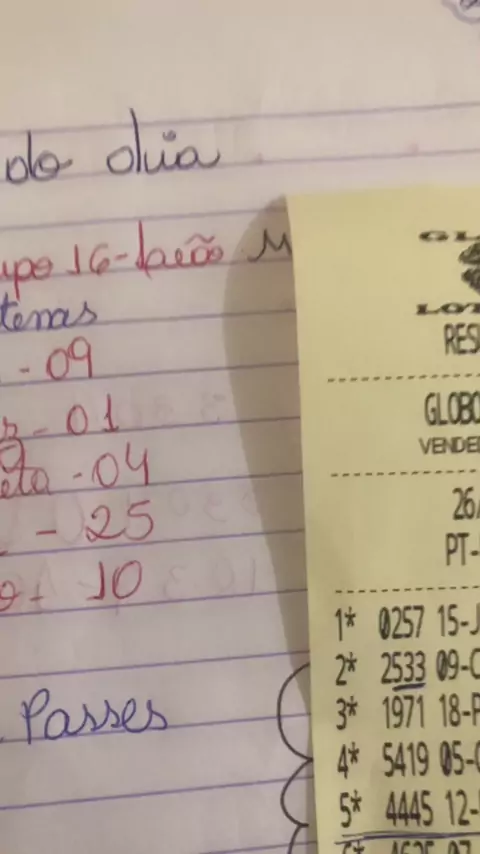 do dia
upo 16-leão M
tenas
- 09
- 01
eta - 04
- 25
10
Passes
GL
LOT
RES
GLOBO
VENDE
26/
PT-
1* 0257 15-J
2* 2533 09-C
3* 1971 18-P
4* 5419 05-C
5* 4445 12-
6* 4625 07